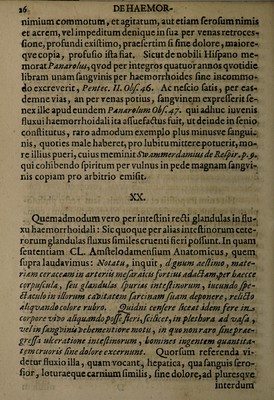 26 DE HAEMOR-
nimium commotum, et agitatum, aut etiam serosum nimis
et acrem, vel impeditum denique in sua per venas retroces-
sione, profundi existimo, praesertim si sine dolore, maiore-
que copia, profusio ista fiat. Sicut de nobili Hispano me-
morat Panarolus, qvod per integros quatuor annos qvotidie
libram unam sangvinis per haemorrhoides sine incommo-
do excreverit, Pentec. II. Obs. 46. Ac nescio satis, per eas-
demne vias, an per venas potius, sangvinem expresserit se-
nex ille apud eundem Panarolum Obs. 47. qui adhuc iuvenis
fluxui haemorrhoidali ita assuefactus fuit, ut deinde in senio
constitutus, raro admodum exemplo plus minusve sangui-
nis, quoties male haberet, pro lubitu mittere potuerit, mo-
re illius pueri, cuius meminit Swammerdamius de Respir. p. 9.
qui cohibendo spiritum per vulnus in pede magnam sangvi-
nis copiam pro arbitrio emisit.
XX.
Quemadmodum vero per intestini recti glandulas in flu-
xu haemorrhoidali: Sic quoque per alias intestinorum cete-
rorum glandulas fluxus similes cruenti fieri possunt. In quam
sententiam CL. Amstelodamensium Anatomicus, quem
supra laudavimus: Notatu, inquit, dignum aestimo, mate-
riam ceraceam in arterias mesaraicas fortius adactam, per haecce
corpuscula, seu glandulas spurias intestinorum, iucundo spe-
ctaculo in illorum cavitatem farcinam suam deponere, relicto
aliqvando colore rubro. Quidni censere liceat idem fere in
corpore vivo aliquando posse fieri, scilicet, in plethora ad vasa,
vel in sangvinis vehementiore motu, in quo non raro sine prae-
gressa ulceratione intestinorum, homines ingentem quantita-
tem cruoris sine dolore excernunt. Quorsum referenda vi-
detur fluxio illa, quam vocant, hepatica, qua sanguis sero-
sior, loturaeque carnium similis, sine dolore, ad plures que
interdum